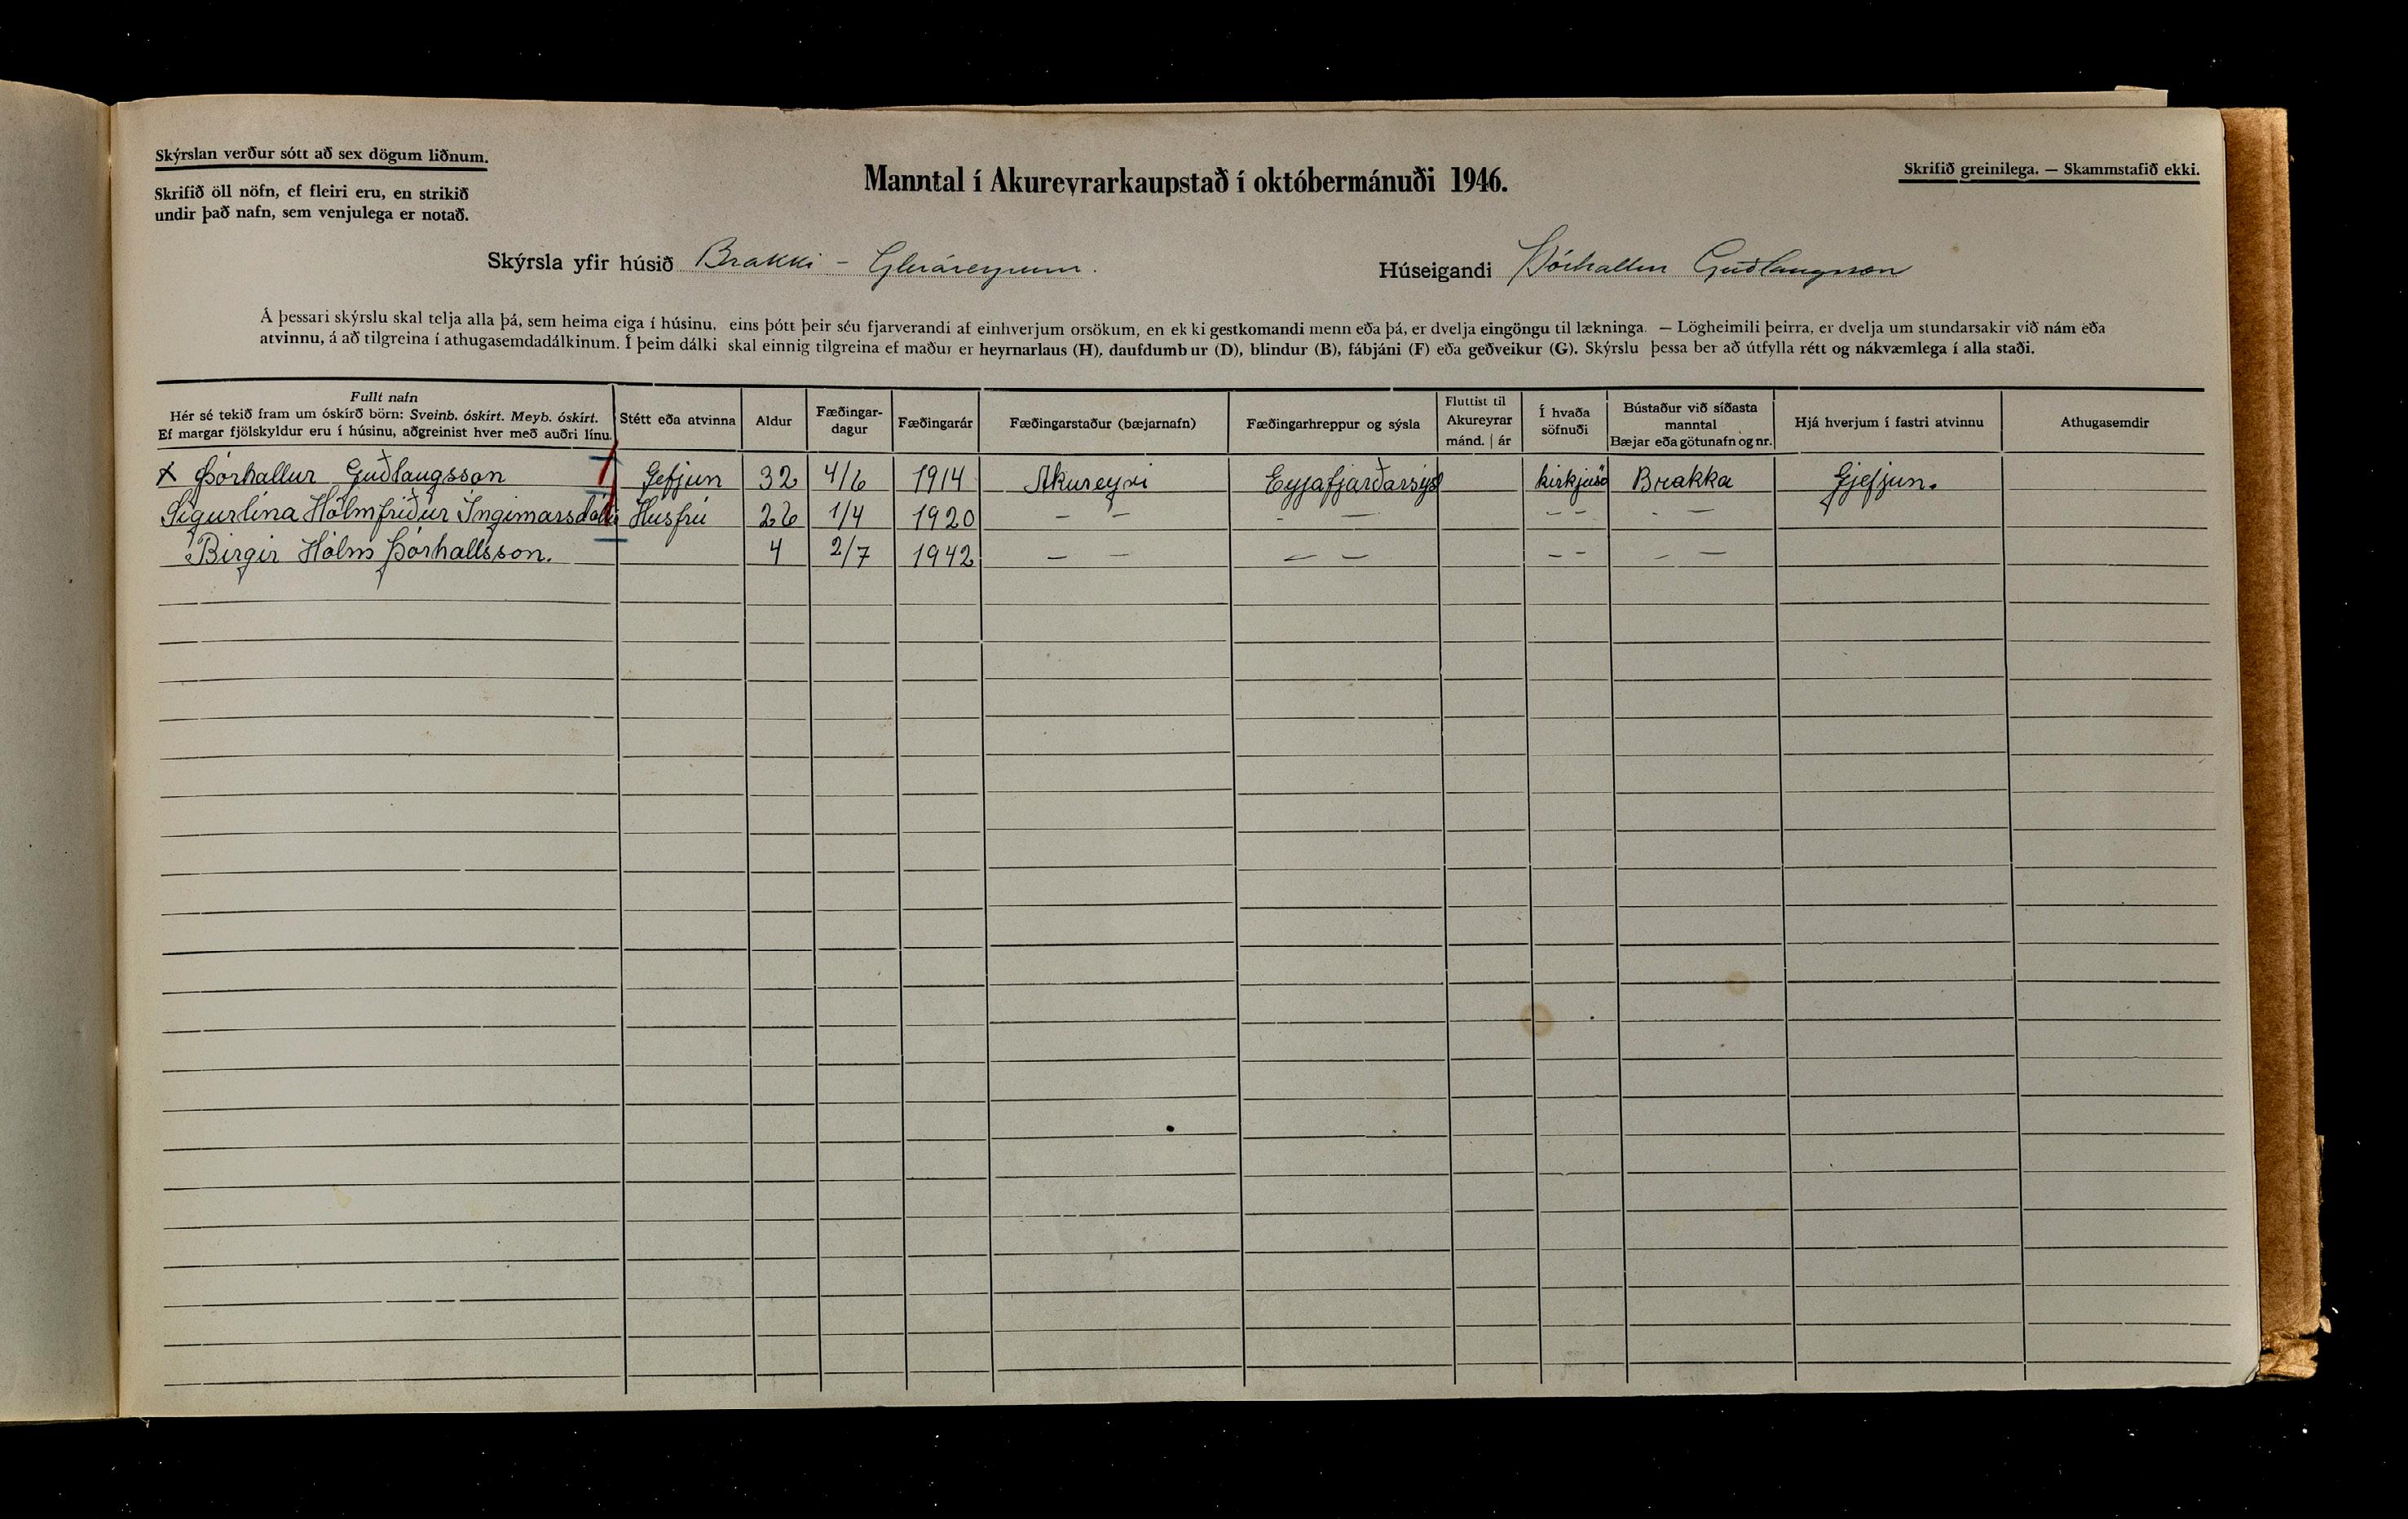 Skýrslan verður sótt að sex dögum liðnum.
Skrifið öll nöfn, ef fleiri eru, en strikið
undir það nafn, sem venjulega er notað.
Manntal í Akureyrarkaupstað í októbermánuði 1946.
Skrifið greinilega. — Skammstafið ekki.
Skýrsla yfir húsið Brakki - Gleráreyrum.
Húseigandi Þórhallur Guðlaugsson
Á þessari skýrslu skal telja alla þá, sem heima eiga í húsinu, eins þótt þeir séu fjarverandi af einhverjum orsökum, en ekki gestkomandi menn eða þá, er dvelja eingöngu til lækninga. — Lögheimili þeirra, er dvelja um stundarsakir við nám eða
atvinnu, á að tilgreina í athugasemdadálkinum. Í þeim dálki skal einnig tilgreina ef maður er heyrnarlaus (H), daufdumbur (D), blindur (B), fábjáni (F) eða geðveikur (G). Skýrslu þessa ber að útfylla rétt og nákvæmlega í alla staði.
Fullt nafn
Hér sé tekið fram um óskírð börn: Sveinb. óskírt. Meyb. óskírt.
Ef margar fjölskyldur eru í húsinu, aðgreinist hver með auðri línu.
Stétt eða atvinna
Aldur
Fæðingar-
dagur
Fæðingarár
Fæðingarstaður (bæjarnafn)
Fæðingarhreppur og sýsla
Fluttist til
Akureyrar
mánd. | ár
Í hvaða
söfnuði
Bústaður við síðasta
manntal
Bæjar eða götunafn og nr.
Hjá hverjum í fastri atvinnu
Athugasemdir
x Þórhallur Guðlaugsson Gefjun 32 4/6 1914 Akureyri Eyjafjarðarsýsl Brakka Gjefjun.
Sigurlína Hólmfríður Ingimarsdóttir Húsfrú 26 1/4 1920 – – - – – – - –
Birgir Hólm Þórhallsson. 4 2/7 1942 – – – – – – – –